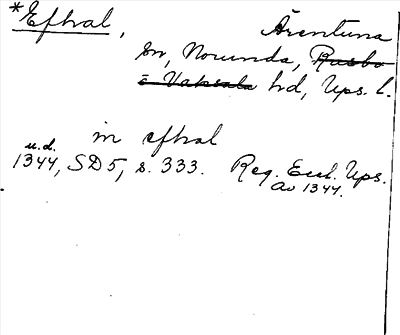 *Efhral, Ärentuna
sn, Norunda, Rasbo
o Vaksala hd, Ups. l.
in efhral
u.d.
1344, SD5, s. 333. Reg. Eccl. Ups.
av 1344.